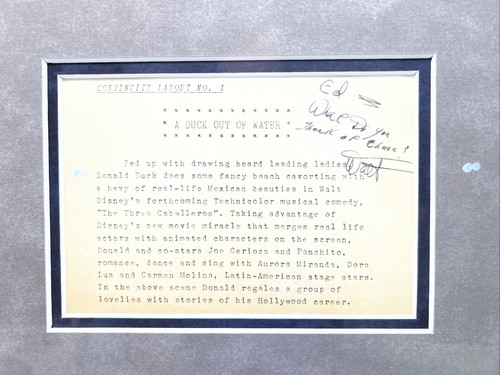 CONTINUITY LAYOUT NO. 1
* * * * * * * * * * * *
* A DUCK OUT OF WATER *
* * * * * * * * * * * *
Ed —
What Do you
think of these?
Walt
Fed up with drawing board leading ladies,
Donald Duck does some fancy beach cavorting with
a bevy of real-life Mexican beauties in Walt
Disney's forthcoming Technicolor musical comedy,
"The Three Caballeros". Taking advantage of
Disney's new movie miracle that marges real life
actors with animated characters on the screen,
Donald and co-stars Joe Carioca and Panchito,
romance, dance and sing with Aurora Miranda, Dora
Luz and Carmen Molina, Latin-American stage stars.
In the above scene Donald regales a group of
lovelies with stories of his Hollywood career.